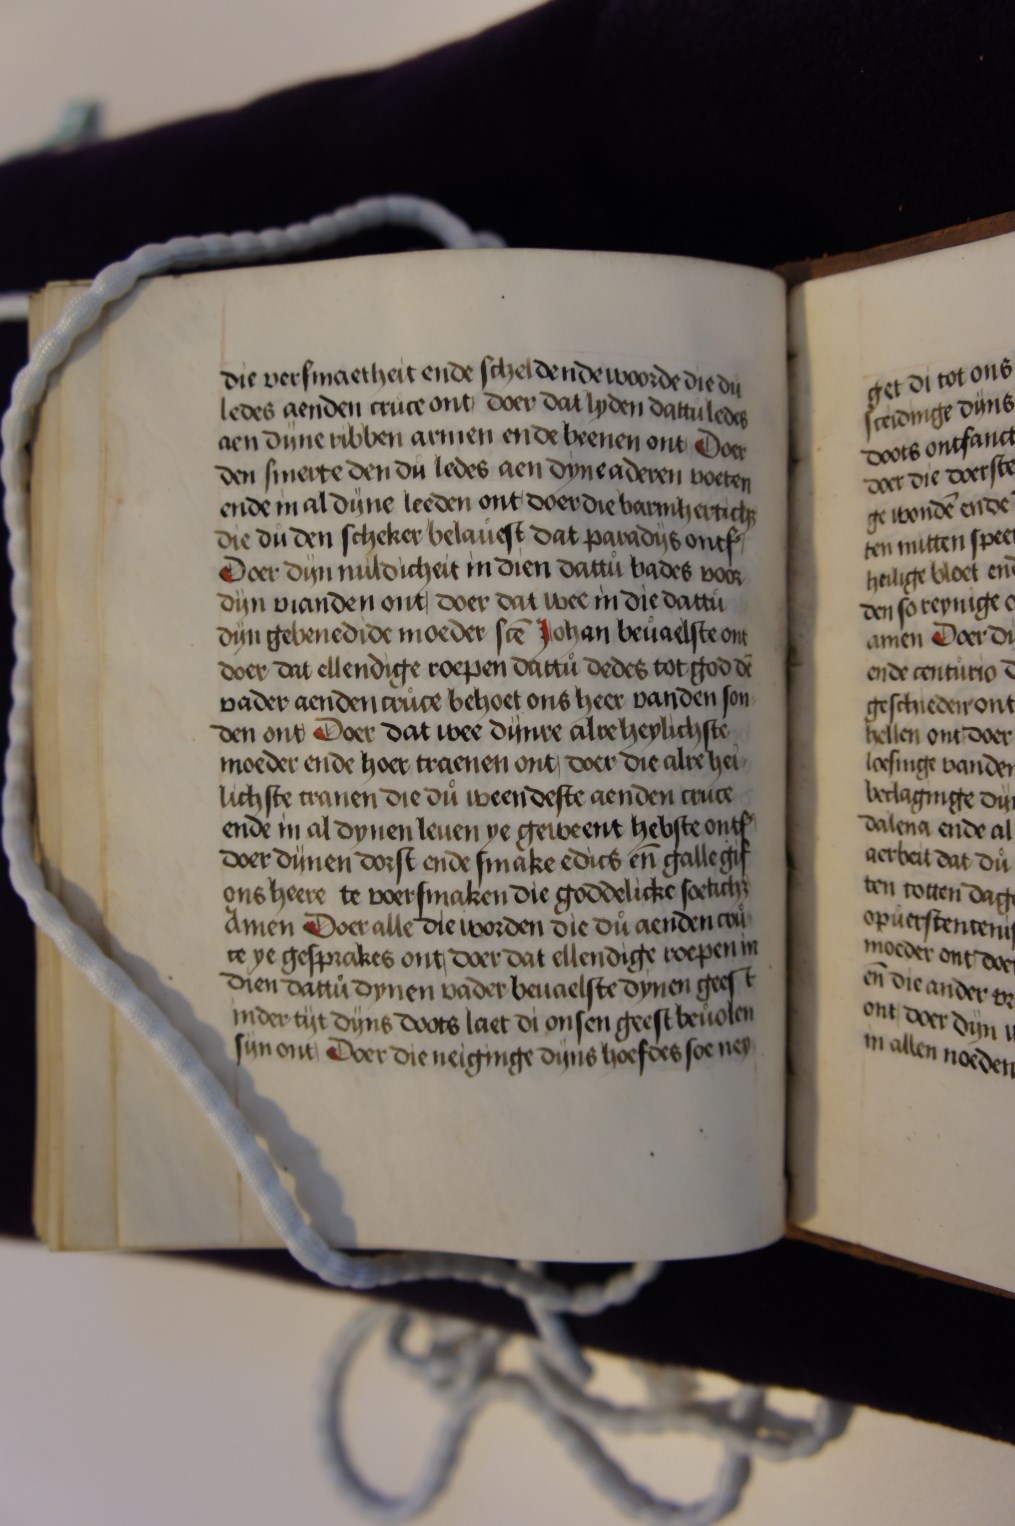 die versmaetheit ende scheldende woorde die du
ledes aenden cruce ont doer dat lyden dattu ledes
aen dijne ribben armen ende beenen ont Doer
den smerte den du ledes aen dyne aderen voeten
ende in al dijne leeden ont doer die barmherticht
die du den scheker belauest dat paradijs ontf
Doer dijn mildicheit in dien dattu bades voor
dijn vianden ont doer dat wee in die dattu
dijn gebenedide moeder scē Johan beuaelste ont
doer dat ellendige roepen dattu dedes tot god dē
vader aenden cruce behoet ons heer vanden son
den ont Doer dat wee dijnre alre heylichste
moeder ende hoer traenen ont doer die alre hei
lichste tranen die du weendeste aenden cruce
ende in al dynen leuen ye geweent hebste ontf
doer dijnen dorst ende smake edics eñ galle gif
ons heere te voersmaken die goddelicke soeticht
Amen Doer alle die worden die du aenden cru
ce ye gesprakes ont doer dat ellendige roepen in
dien dattu dynen vader beuaelste dynen geest
inder tijt dijns doots laet di onsen geest beuolen
sijn ont Doer die neiginge dijns hoefdes soe ney
get di tot ons
sceidinge dijns
doots ontfanct
doer die doerste
ge wondē ende
ten mitten speer
heilige bloet end
den so reynige o
amen Doer di
ende centurio d
geschieden ont
hellen ont doer
loesinge vanden
beclaginge dij
dalena ende al
aerbeit dat du
ten totten dage
opuerstentenis
moeder ont doer
eñ die ander
ont doer dijn
in allen noeden